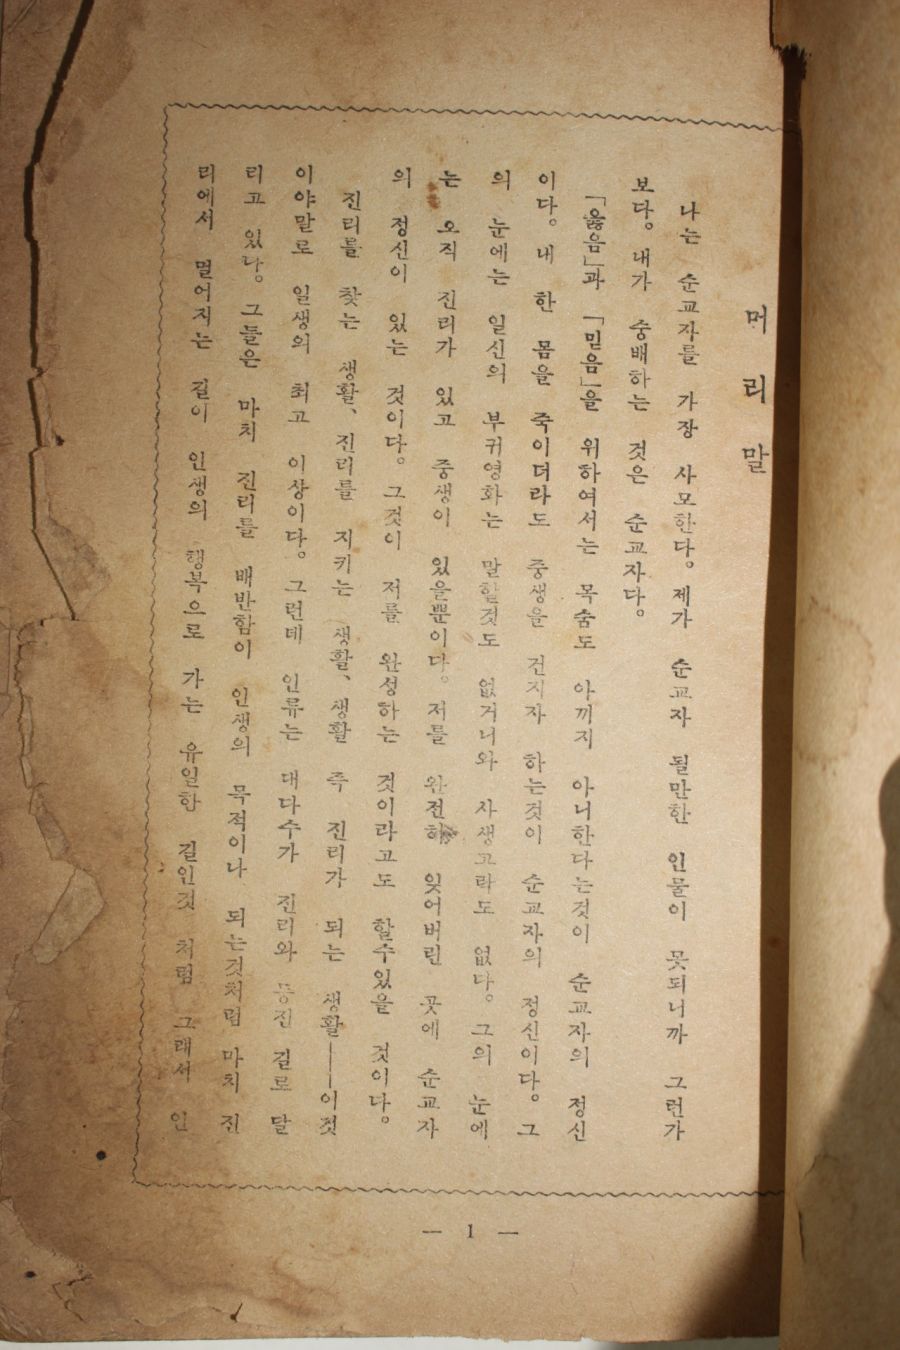 머리말
나는 순교자를 가장 사모한다。제가 순교자 될만한 인물이 못되니까 그런가
보다。내가 숭배하는 것은 순교자다。
「옳음」과 「믿음」을 위하여서는 목숨도 아끼지 아니한다는것이 순교자의 정신
이다。내 한 몸을 죽이더라도 중생을 건지자 하는것이 순교자의 정신이다。그
의 눈에는 일신의 부귀영화는 말할것도 없거니와 사생고락도 없다。그의 눈에
는 오직 진리가 있고 중생이 있을뿐이다。저를 완전히 잊어버린 곳에 순교자
의 정신이 있는 것이다。그것이 저를 완성하는 것이라고도 할수있을 것이다。
진리를 찾는 생활、진리를 지키는 생활、생활 즉 진리가 되는 생활――이것
이야말로 일생의 최고 이상이다。그런데 인류는 대다수가 진리와 등진 길로 달
리고 있다。그들은 마치 진리를 배반함이 인생의 목적이나 되는것처럼 마치 진
리에서 멀어지는 길이 인생의 행복으로 가는 유일한 길인것 처럼 그래서 인
— 1 —